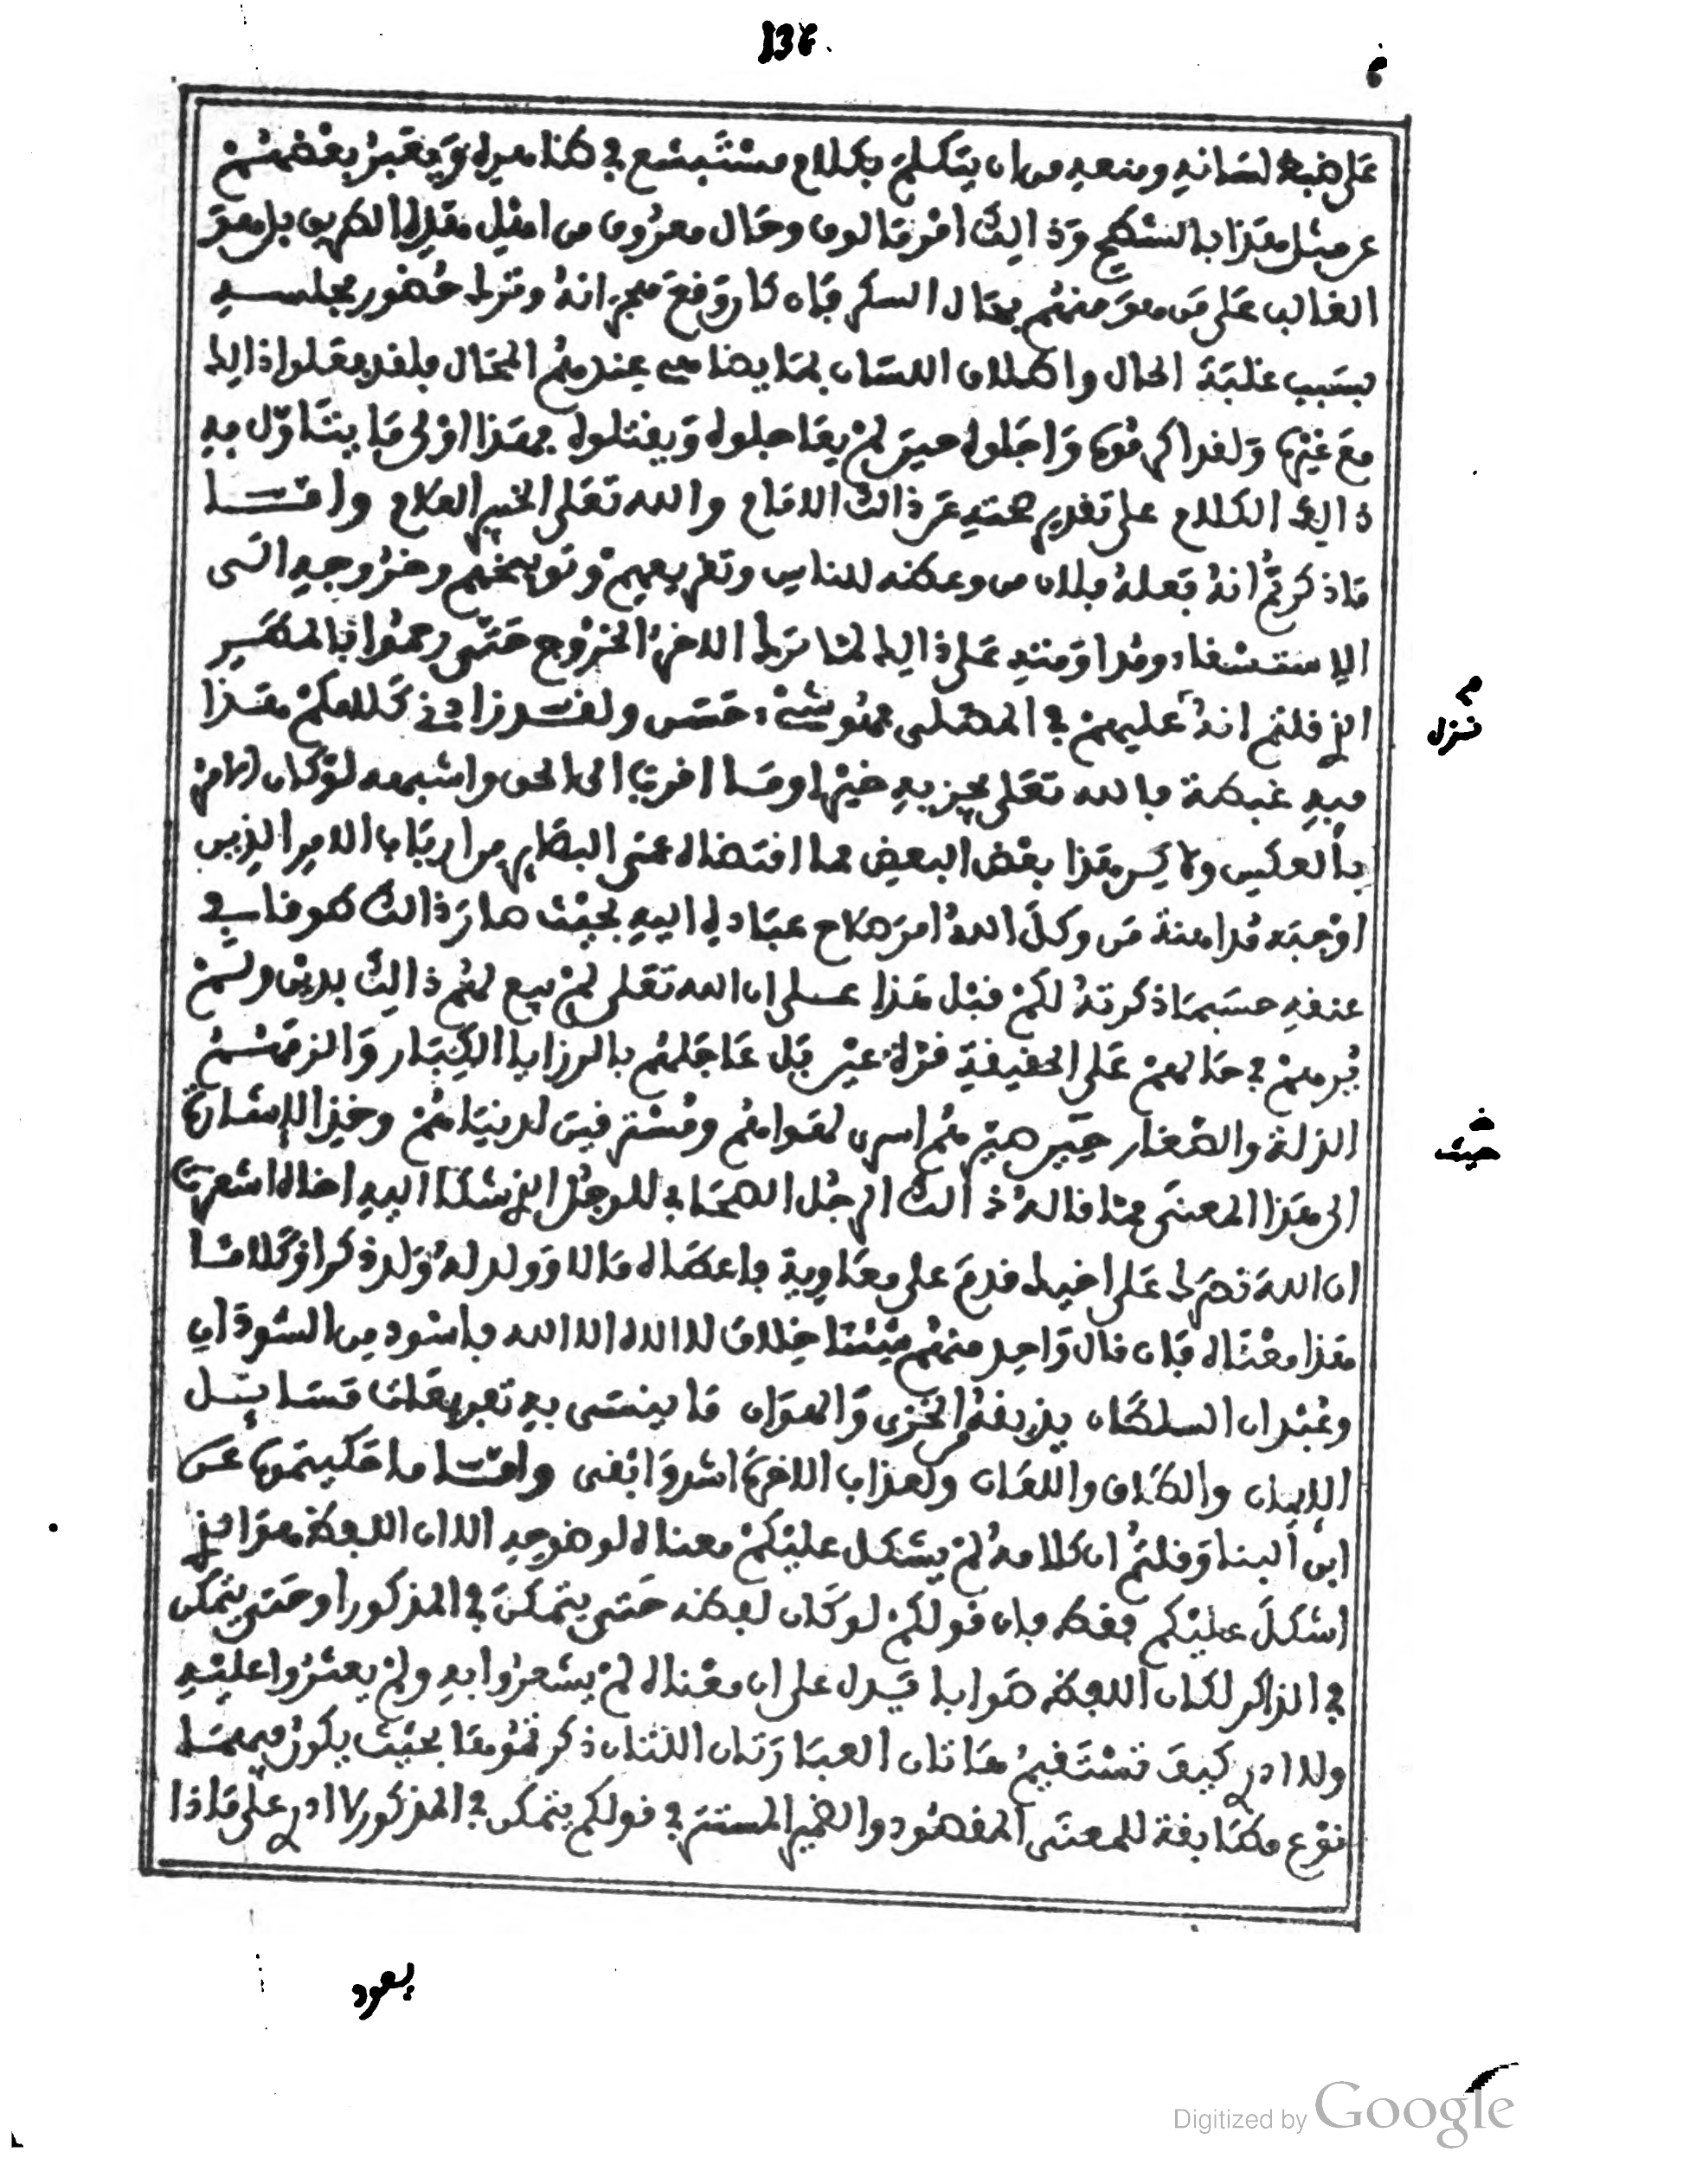 136
على ضبط لسانه ومنعه من ان يتكلم بكلام مستبشع في ظاهره ويعبر بعضهم
عن مثل هذا بالشطح وذالك امر مالوف وحال معروف من اهل هذه الطريق بل هو
الغالب على من هو منهم بحال السكر فان كان وقع هجرانه وترك حضور مجلسه
بسبب غلبة الحال واطلاق اللسان بما يضاهي عندهم المحال فلقد فعلوا ذالك
مع غيره ولقد اكرموه واجلوه حين لم يعاجلوه ويقتلوه فهذا اولى ما يتاول به
ذالك الكلام على تقدير صحته عن ذالك الامام والله تعلى الخبير العلام وامــا
ما ذكرتم انه فعله فلان من وعظه للناس وتقريعهم وتوبيخهم وخروجه الى
الاستسقاء ومداومته على ذالك لما ترك الاخر الخروج حتى رحموا بالمطــر
الذي قلتم انه عليهم في المصلى فهو شيء حسن ولقد زادني كلامكم هذا
فيه غبطة فالله تعلى يجزيه خيرا وما اقرب الى الحق واشبهه لو كان الامر
بالعكس ولاكن هذا بعض البعض مما اقتضاه عمى البصاير من ارباب الامر الذين
اوجبه مداهنة من وكل الله امر صلاح عباده اليه بحيث صار ذالك طوقا في
عنقه حسبما ذكرته لكم قبل هذا على ان الله تعلى لم يبع لهم ذالك بدين ولم
يرهم في حالهم على الحقيقة قرة عين بل عاجلهم بالرزايا الكبار والزمهــم
الذلة والصغار حين صيرهم اسرى لهواهم ومسترقين لدنياهم وخير الاشارة
الى هذا المعنى مما قاله ذالك الرجل الصحابي للرجل الذي شكا اليه اخاه اشعرت
ان الله نصرك على اخيك قدم على معاوية فاعطاه مالا وولد له ولد ذكر او كلاما
هذا معناه فان قال واحد منهم متنا خلاف لا اله الا الله فاسود من السودان
وعبدان السلطان يذيقه الخزي والهوان ما ينسى به تعريفات مسايل
الايمان والطلاق واللعان ولعذاب الاخرة اشد وابقى وامــا ما حكيتموه عن
ابن البنا وقلتم ان كلامه لم يشكل عليكم معناه لوضوحه الا ان اللفظ هو الذي
اشكل عليكم فقط فان قولكم لو كان لفظه حتى يتمكن في المذكور او حتى يتمكن
في الذاكر لكان اللفظ صوابا يدل على ان معناه لم يشعروا به ولم يعثروا عليه
ولا ادري كيف تستقيم هاتان العبارتان اللتان ذكرتموها بحيث يكون فيهما
نوع مطابقة للمعنى المقصود والضمير المستتر في قولكم يتمكن في المذكور لا ادري على ماذا
نزل
حيث
يعود
Digitized by Google